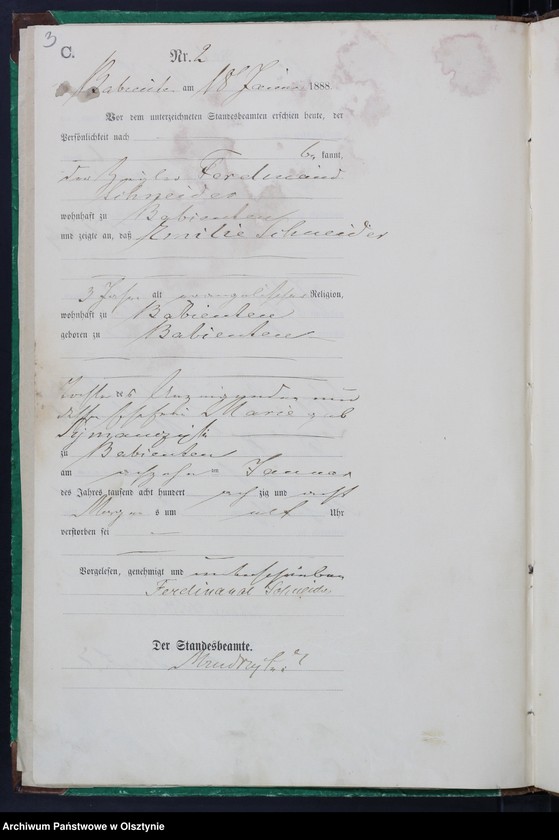 3
C.
Nr. 2
Babienten am 18 Januar 1888
Vor dem unterzeichneten Standesbeamten erschien heute, der
Persönlichkeit nach
be kannt,
der Ferdinand
Schneider
wohnhaft zu Babienten
und zeigte an, daß Emilie Schneider
3 Jahr alt evangelischer Religion,
wohnhaft zu Babienten
geboren zu Babienten
Tochter des Anzeigenden und
dessen Ehefrau Marie geb
zu Babienten
am Januar
des Jahres tausend acht hundert acht zig und acht
Morgens um acht Uhr
verstorben sei
Vorgelesen, genehmigt und unterschrieben
Ferdinand Schneider
Der Standesbeamte.
Archiwum Państwowe w Olsztynie